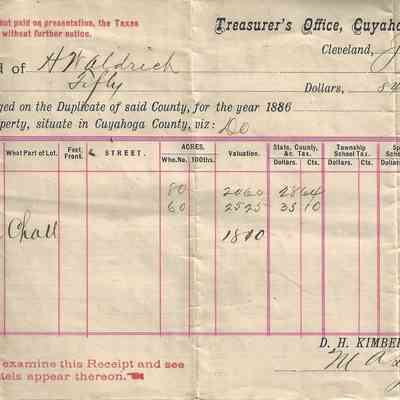 but paid on presentation, the Taxes
without further notice.
Treasurer's Office, Cuyaho
Cleveland, J
d of H Waldrich
Fifty Dollars, 54
ged on the Duplicate of said County, for the year 1886
perty, situate in Cuyahoga County, viz: Do
What Part of Lot. Feet Front. STREET. ACRES. Valuation. State, County, &c. Tax. Township School Tax. Sp Scho
Who. No. 100ths. Dollars. Cts. Dollars. Cts. Dollars
80 2060 28 64
60 2525 35 10
Chatt 1870
D. H. KIMBER
examine this Receipt and see
tels appear thereon.